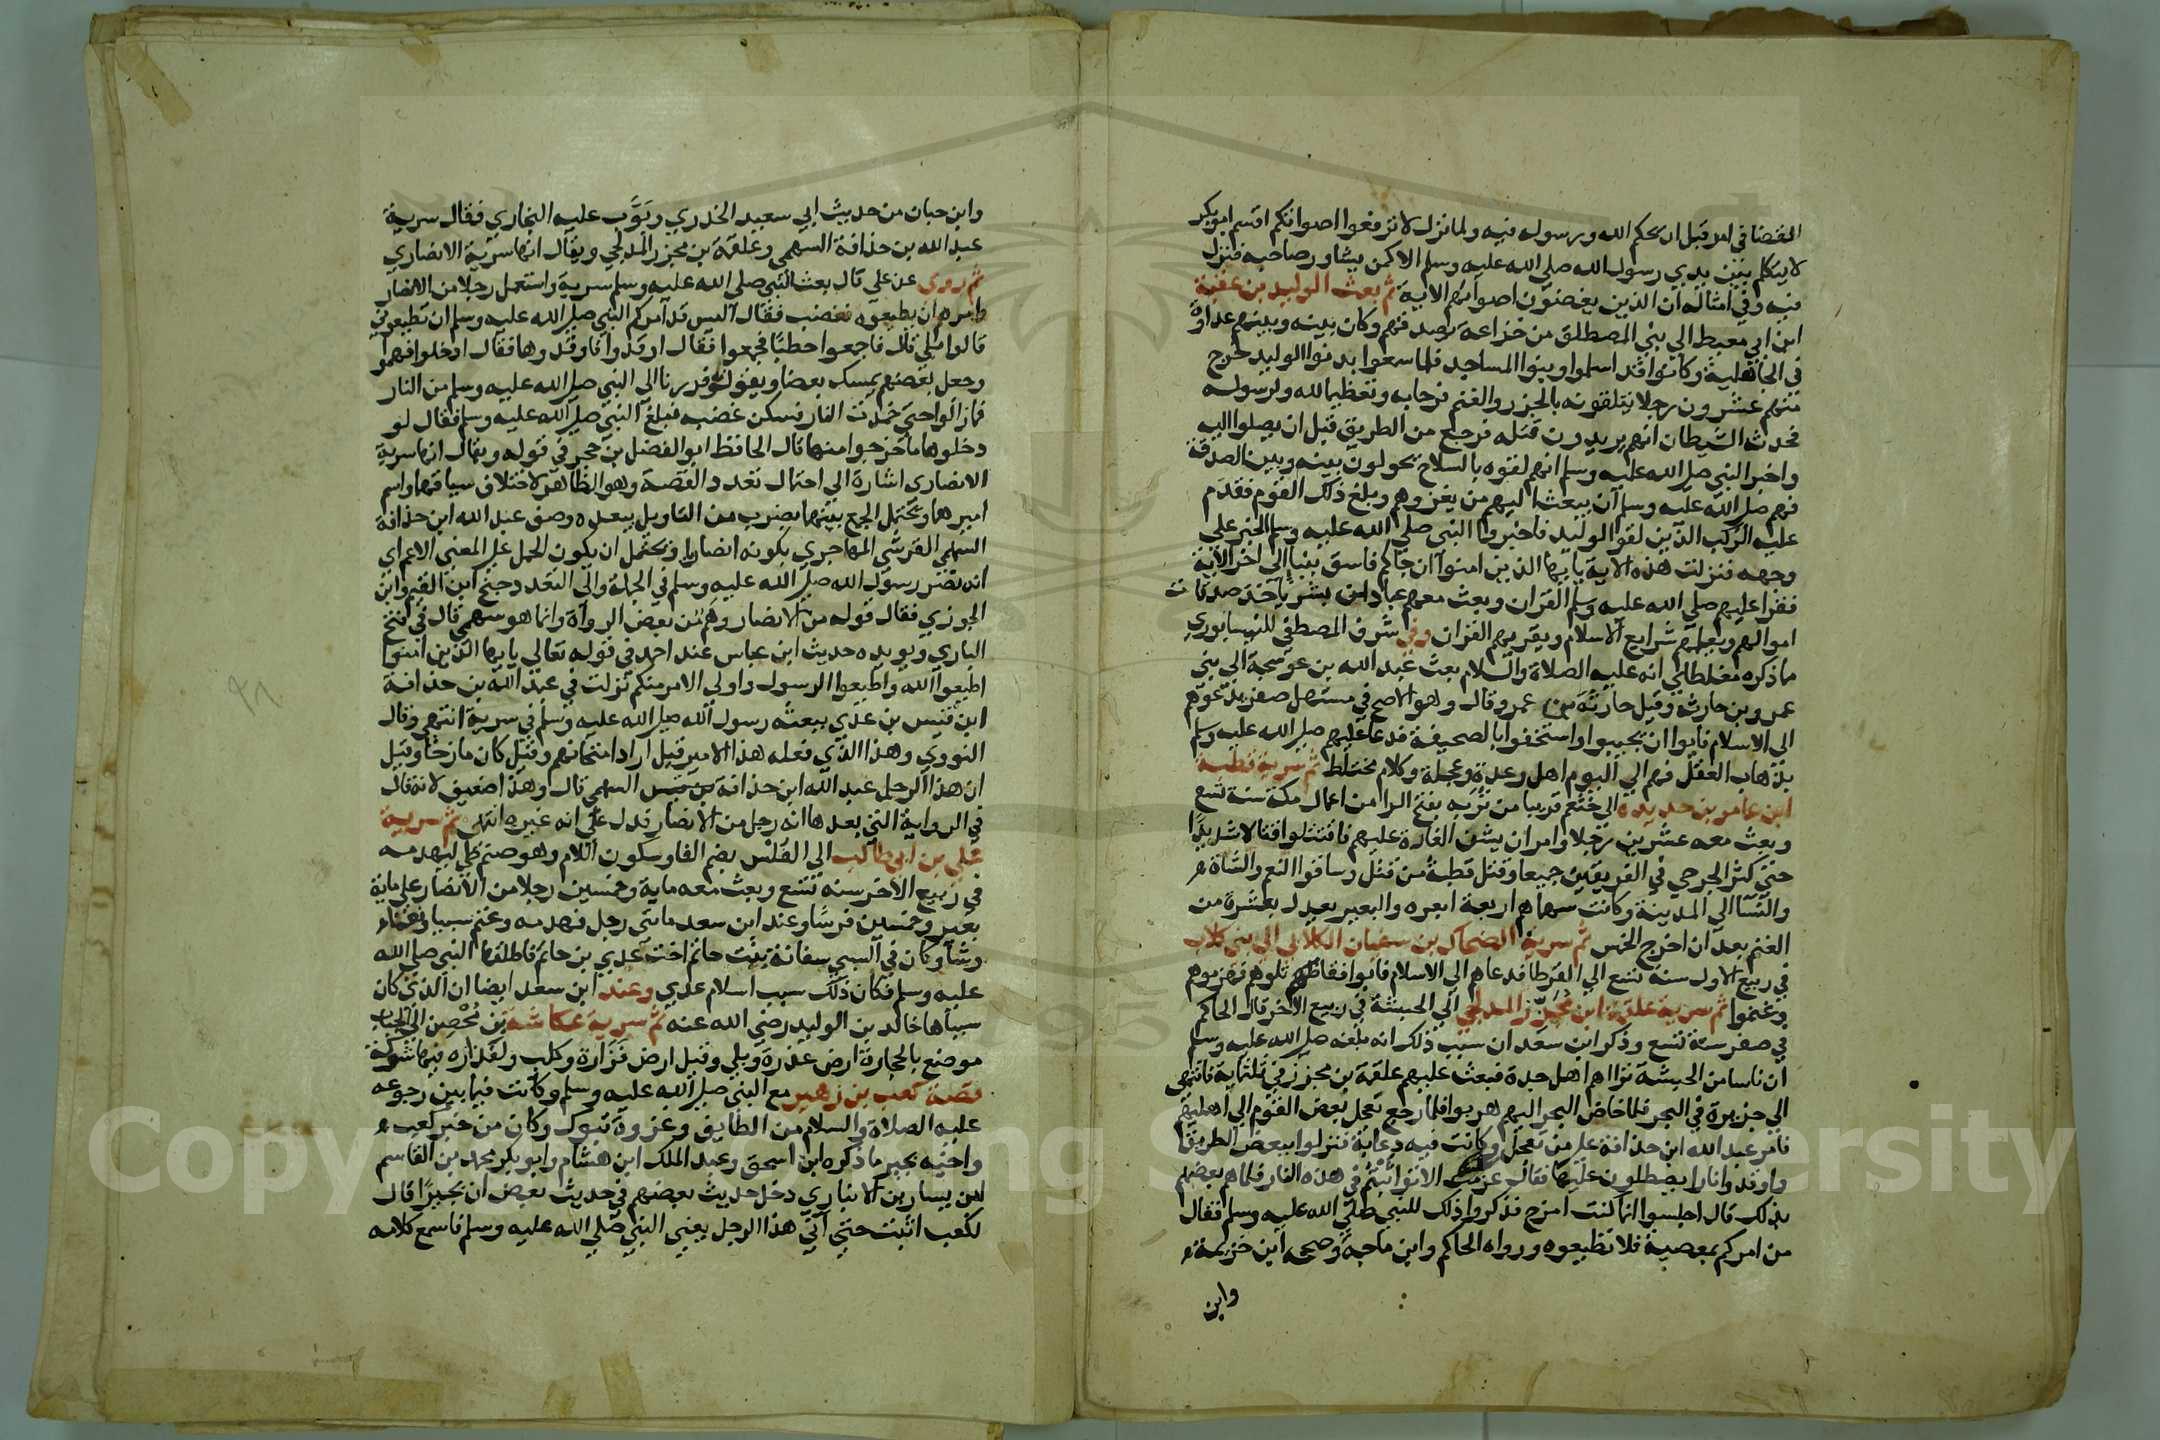 القضا في امر قبل ان يحكم الله ورسوله فيه ولما نزل لا ترفعوا اصواتكم اقسم ابو بكر
لا يتكلم بين يدي رسول الله صلى الله عليه وسلم الا كمن يشاور صاحبه فنزل
فيه وفي امثاله ان الذين يغضون اصواتهم الاية ثم بعث الوليد بن عقبة
ابن ابي معيط الي بني المصطلق من خزاعة يصدقهم وكان بينه وبينهم عداوة
في الجاهلية وكانوا قد اسلموا وبنوا المساجد فلما سمعوا بدنوا الوليد خرج
منهم عشرون رجلا يتلقونه بالجزر والغنم فرحا به وتعظيما لله ولرسوله
فحدثه الشيطان انهم يريدون قتله فرجع من الطريق قبل ان يصلوا اليه
واخبر النبي صلى الله عليه وسلم انهم لقوه بالسلاح يحولون بينه وبين الصدقة
فهم صلى الله عليه وسلم ان يبعث اليهم من يغزوهم وبلغ ذلك القوم فقدم
عليه الركب الذين لقوا الوليد فاخبروا النبي صلى الله عليه وسلم الخبر على
وجهه فنزلت هذه الاية يا يها الذين امنوا ان جاكم فاسق بنبا الى اخر الاية
فقرا عليهم صلى الله عليه وسلم القران وبعث معهم عباد بن بشر ياخذ صدقات
اموالهم ويعلمهم شرايع الاسلام ويقريهم القران وفي شرف المصطفي للنيسابوري
ما ذكره مغلطاي انه عليه الصلاة والسلام بعث عبد الله بن عوسجة الي بني
عمرو بن حارثة وقيل حارثة بن عمرو قال وهو الاصح في مستهل صفر يدعوهم
الي الاسلام فابوا ان يجيبوا واستخفوا بالصحيفة فدعا عليهم صلى الله عليه وسلم
بذهاب العقل فهم الي اليوم اهل رعدة وعجلة وكلام مختلط ثم سرية قطبة
ابن عامر بن حديده الي خثعم قريبا من تربه بفتح الرا من اعمال مكة سنة تسع
وبعث معه عشرين رجلا وامر ان يشن الغارة عليهم فاقتتلوا قتالا شديدا
حتي كثر الجرحي في الفريقين جميعا وقتل قطبة من قتل وساقوا النعم والشاة
والنسا الي المدينة وكانت سهامهم اربعة ابعره والبعير يعدل بعشرة من
الغنم بعد ان اخرج الخمس ثم سرية الضحاك بن سفيان الكلابي الي بني كلاب
في ربيع الاول سنة تسع الي القرطا فدعاهم الي الاسلام فابوا فقاتلوهم فهزموهم
وغنموا ثم سرية علقمة ابن مجزز المدلجي الي الحبشة في ربيع الاخر قال الحاكم
في صفر سنة تسع وذكر ابن سعد ان سبب ذلك انه بلغه صلى الله عليه وسلم
ان ناسا من الحبشة تراهم اهل جدة فبعث عليهم علقمة بن مجزز في ثلثماية فانتهي
الي جزيرة في البحر فلما خاض البحر اليهم هربوا فلما رجع تعجل بعض القوم الي اهليهم
فامر عبد الله ابن حذافة علي من تعجل وكانت فيه دعابة فنزلوا ببعض الطريق
واوقدوا نارا يصطلون عليها فقال عزمت الا تواثبتم في هذه النار فلما هم بعضهم
بذلك قال اجلسوا انما كنت امزح فذكروا ذلك للنبي صلى الله عليه وسلم فقال
من امركم بمعصية فلا تطيعوه ورواه الحاكم وابن ماجة وصححه ابن خزيمة
وابن
وابن حبان من حديث ابي سعيد الخدري وبوب عليه البخاري فقال سرية
عبد الله بن حذافة السهمي وعلقمة بن مجزز المدلجي ويقال انها سرية الانصاري
ثم روى عن علي قال بعث النبي صلى الله عليه وسلم سرية واستعمل رجلا من الانصار
وامرهم ان يطيعوه فغضب فقال اليس قد امركم النبي صلى الله عليه وسلم ان تطيعوني
قالوا بلي قال فاجمعوا حطبا فجمعوا فقال اوقدوا نارا وقدوها فقال ادخلوا فهموا
وجعل بعضهم يمسك بعضا ويقولون فررنا الي النبي صلى الله عليه وسلم من النار
فما زالوا حتي خمدت النار فسكن غضبه فبلغ النبي صلى الله عليه وسلم فقال لو
دخلوها ما خرجوا منها قال الحافظ ابو الفضل بن حجر في قوله ويقال انها سرية
الانصاري اشارة الي احتمال تعدد القصة وهو الظاهر لاختلاف سياقهما واسم
اميرهما ويحتمل الجمع بينهما بضرب من التاويل يبعده وصف عبد الله ابن حذافة
السهمي القرشي المهاجري بكونه انصاريا ويحتمل ان يكون الحمل علي المعني الاعم اي
انه نصر رسول الله صلى الله عليه وسلم في الجملة والي التعدد جنح ابن القيم وابن
الجوزي فقال قوله من الانصار وهم من بعض الرواة وانما هو سهمي قال في فتح
الباري ويويده حديث ابن عباس عند احمد في قوله تعالي يا يها الذين امنوا
اطيعوا الله واطيعوا الرسول واولي الامر منكم نزلت في عبد الله بن حذافة
ابن قيس بن عدي يبعثه رسول الله صلى الله عليه وسلم في سرية انتهي وقال
النووي وهذا الذي فعله هذا الامير قيل اراد امتحانهم وقيل كان مازحا وقيل
ان هذا الرجل عبد الله ابن حذافة السهمي قال وهذا ضعيف لانه قال
في الرواية التي بعدها انه رجل من الانصار فدل علي انه غيره انتهى ثم سرية
علي بن ابي طالب الي الفلس بضم الفا وسكون اللام وهو صنم طي ليهدمه
في ربيع الاخر سنة تسع وبعث معه ماية وخمسين رجلا من الانصار علي ماية
بعير وخمسين فرسا وعند ابن سعد مايتي رجل فهدمه وغنم سبيا ونعما
وشا وكان في السبي سفانة بنت حاتم اخت عدي بن حاتم فاطلقها النبي صلى الله
عليه وسلم فكان ذلك سبب اسلام عدي وعند ابن سعد ايضا ان الذي كان
سباها خالد بن الوليد رضي الله عنه ثم سرية عكاشة بن محصن الي الجباب
موضع بالحجاز ارض عذرة وبلي وقيل ارض فزارة وكلب ولعذره فيها شركة
قصة كعب بن زهير مع النبي صلى الله عليه وسلم وكانت فيما بين رجوعه
عليه الصلاة والسلام من الطايف وغزوة تبوك وكان من خبر كعب
واخيه بجير ما ذكره ابن اسحق وعبد الملك ابن هشام وابو بكر محمد بن القاسم
ابن يسار بن الانباري دخل حديث بعضهم في حديث بعض ان بجيرا قال
لكعب اثبت حتي آتي هذا الرجل يعني النبي صلى الله عليه وسلم فاسمع كلامه